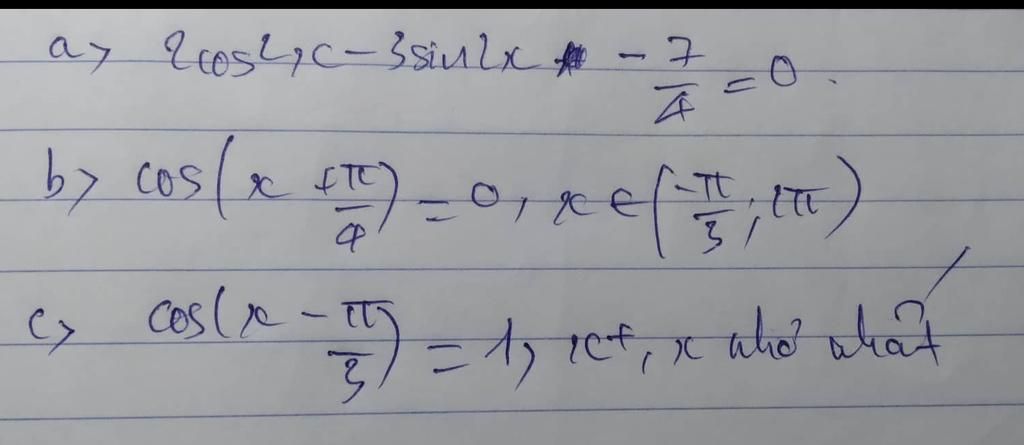 a> 2cos²x - 3sin2x - 7/4 = 0.
b> cos(x + π/4) = 0, x ∈ (-π/3; 2π)
c> cos(x - π/3) = 1, x+, x nhỏ nhất